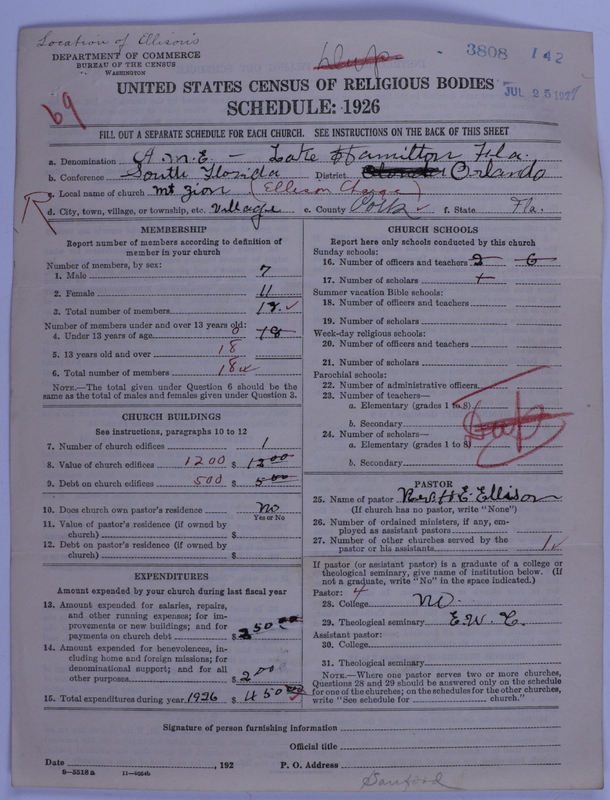 Location of Ellison's
DEPARTMENT OF COMMERCE
BUREAU OF THE CENSUS
WASHINGTON
Dup
3808 142
JUL 25 1927
69
UNITED STATES CENSUS OF RELIGIOUS BODIES
SCHEDULE: 1926
FILL OUT A SEPARATE SCHEDULE FOR EACH CHURCH. SEE INSTRUCTIONS ON THE BACK OF THIS SHEET
a. Denomination A.M.E. - Lake Hamilton Fla.
b. Conference South Florida District Orlando
c. Local name of church Mt Zion (Ellison Charge)
R
d. City, town, village, or township, etc. Village e. County Polk ✓ f. State Fla.
MEMBERSHIP
Report number of members according to definition of
member in your church
Number of members, by sex:
1. Male 7
2. Female 11
3. Total number of members 18 ✓
Number of members under and over 13 years old:
4. Under 13 years of age 18
5. 13 years old and over 18
6. Total number of members 18
NOTE.—The total given under Question 6 should be the
same as the total of males and females given under Question 3.
CHURCH BUILDINGS
See instructions, paragraphs 10 to 12
7. Number of church edifices 1
8. Value of church edifices 1200 $ 12 00
9. Debt on church edifices 500 $ 5 00
10. Does church own pastor's residence No
Yes or No
11. Value of pastor's residence (if owned by
church) $
12. Debt on pastor's residence (if owned by
church) $
EXPENDITURES
Amount expended by your church during last fiscal year
13. Amount expended for salaries, repairs,
and other running expenses; for im-
provements or new buildings; and for
payments on church debt $ 50 00
14. Amount expended for benevolences, in-
cluding home and foreign missions; for
denominational support; and for all
other purposes $ 2 00
15. Total expenditures during year 1926 $ 450 00
CHURCH SCHOOLS
Report here only schools conducted by this church
Sunday schools:
16. Number of officers and teachers 2 6
17. Number of scholars
Summer vacation Bible schools:
18. Number of officers and teachers
19. Number of scholars
Week-day religious schools:
20. Number of officers and teachers
21. Number of scholars
Parochial schools:
22. Number of administrative officers
23. Number of teachers—
a. Elementary (grades 1 to 8)
b. Secondary
Dup
24. Number of scholars—
a. Elementary (grades 1 to 8)
b. Secondary
PASTOR
25. Name of pastor Rev H. E. Ellison
(If church has no pastor, write "None")
26. Number of ordained ministers, if any, em-
ployed as assistant pastors
27. Number of other churches served by the
pastor or his assistants 1 ✓
If pastor (or assistant pastor) is a graduate of a college or
theological seminary, give name of institution below. (If
not a graduate, write "No" in the space indicated.)
Pastor: 4
28. College No
29. Theological seminary E.W.C.
Assistant pastor:
30. College
31. Theological seminary
NOTE.—Where one pastor serves two or more churches,
Questions 28 and 29 should be answered only on the schedule
for one of the churches; on the schedules for the other churches,
write "See schedule for church."
Signature of person furnishing information
Official title
Date , 192 P. O. Address
9-5518a 11-4554b
Sanford